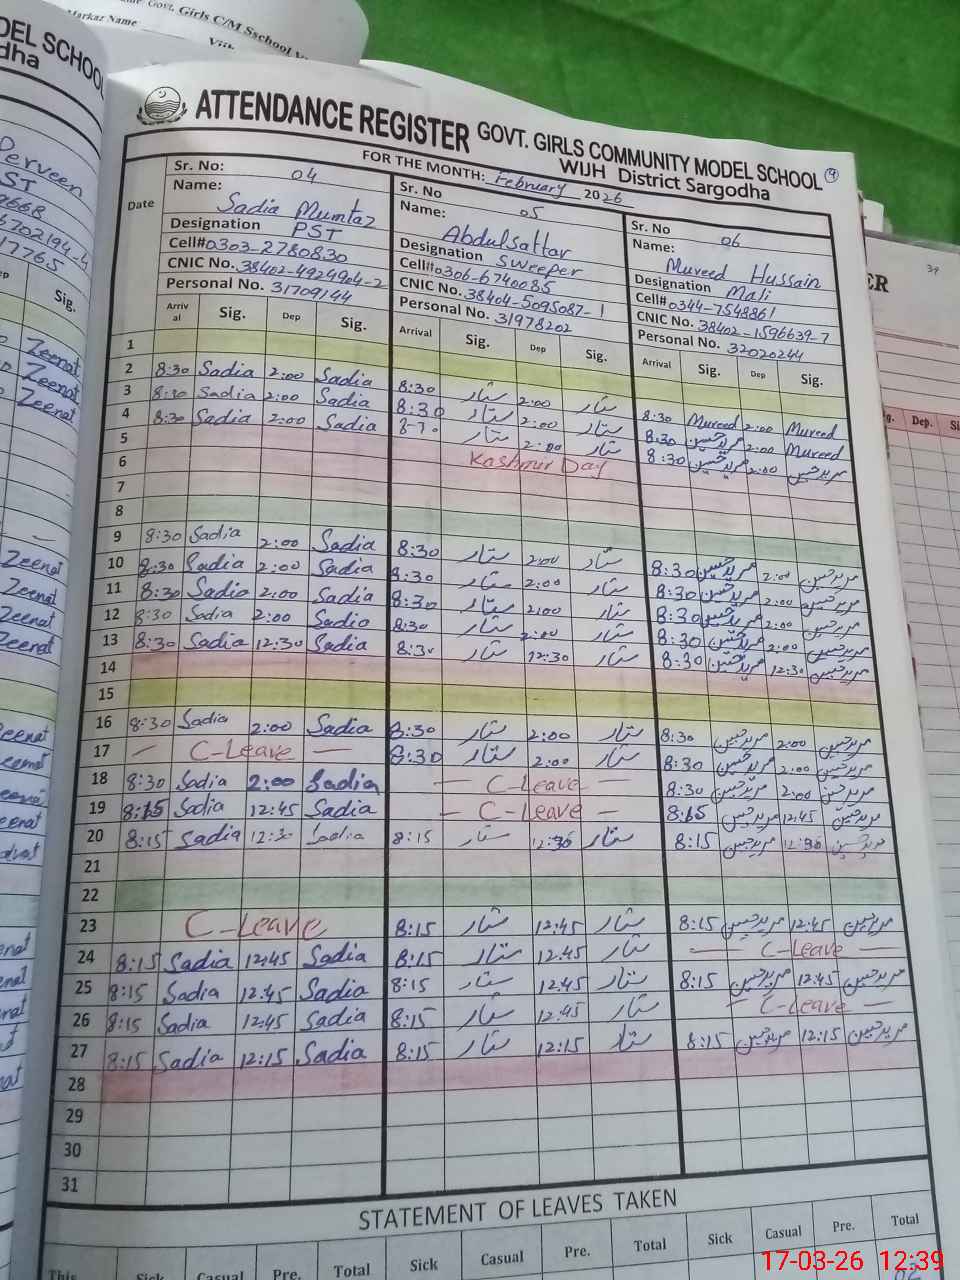 Govt. Girls C/M Sschool
Markaz Name
DEL SCHOOL
dha
ATTENDANCE REGISTER GOVT. GIRLS COMMUNITY MODEL SCHOOL
WIJH District Sargodha
FOR THE MONTH: February 2026
9
Date
Sr. No: 04
Name: Sadia Mumtaz
Designation PST
Cell#0303-2780830
CNIC No. 38402-4924904-2
Personal No. 31709144
Sr. No 05
Name: Abdulsattar
Designation Sweeper
Cell#0306-6740085
CNIC No. 38404-5095087-1
Personal No. 31978202
Sr. No 06
Name: Mureed Hussain
Designation Mali
Cell# 0344-7548861
CNIC No. 38402-1596639-7
Personal No. 32020244
Arriv al Sig. Dep Sig. Arrival Sig. Dep Sig. Arrival Sig. Dep Sig.
1
2 8:30 Sadia 2:00 Sadia 8:30 ستار 2:00 ستار 8:30 Mureed 2:00 Mureed
3 8:30 Sadia 2:00 Sadia 8:30 ستار 2:00 ستار 8:30 مرید حسین 2:00 Mureed
4 8:30 Sadia 2:00 Sadia 8:30 ستار 2:00 ستار 8:30 مرید حسین 2:00 مرید حسین
5 Kashmir Day
6
7
8
9 8:30 Sadia 2:00 Sadia 8:30 ستار 2:00 ستار 8:30 مرید حسین 2:00 مرید حسین
10 8:30 Sadia 2:00 Sadia 8:30 ستار 2:00 ستار 8:30 مرید حسین 2:00 مرید حسین
11 8:30 Sadia 2:00 Sadia 8:30 ستار 2:00 ستار 8:30 مرید حسین 2:00 مرید حسین
12 8:30 Sadia 2:00 Sadia 8:30 ستار 2:00 ستار 8:30 مرید حسین 2:00 مرید حسین
13 8:30 Sadia 12:30 Sadia 8:30 ستار 12:30 ستار 8:30 مرید حسین 12:30 مرید حسین
14
15
16 8:30 Sadia 2:00 Sadia 8:30 ستار 2:00 ستار 8:30 مرید حسین 2:00 مرید حسین
17 — C-Leave — 8:30 ستار 2:00 ستار 8:30 مرید حسین 2:00 مرید حسین
18 8:30 Sadia 2:00 Sadia — C-Leave — 8:30 مرید حسین 2:00 مرید حسین
19 8:15 Sadia 12:45 Sadia — C-Leave — 8:15 مرید حسین 12:45 مرید حسین
20 8:15 Sadia 12:30 Sadia 8:15 ستار 12:30 ستار 8:15 مرید حسین 12:30 مرید حسین
21
22
23 C-Leave 8:15 ستار 12:45 ستار 8:15 مرید حسین 12:45 مرید حسین
24 8:15 Sadia 12:45 Sadia 8:15 ستار 12:45 ستار — C-Leave —
25 8:15 Sadia 12:45 Sadia 8:15 ستار 12:45 ستار 8:15 مرید حسین 12:45 مرید حسین
26 8:15 Sadia 12:45 Sadia 8:15 ستار 12:45 ستار — C-Leave —
27 8:15 Sadia 12:15 Sadia 8:15 ستار 12:15 ستار 8:15 مرید حسین 12:15 مرید حسین
28
29
30
31
STATEMENT OF LEAVES TAKEN
This Sick Casual Pre. Total Sick Casual Pre. Total Sick Casual Pre. Total
17-03-26 12:39